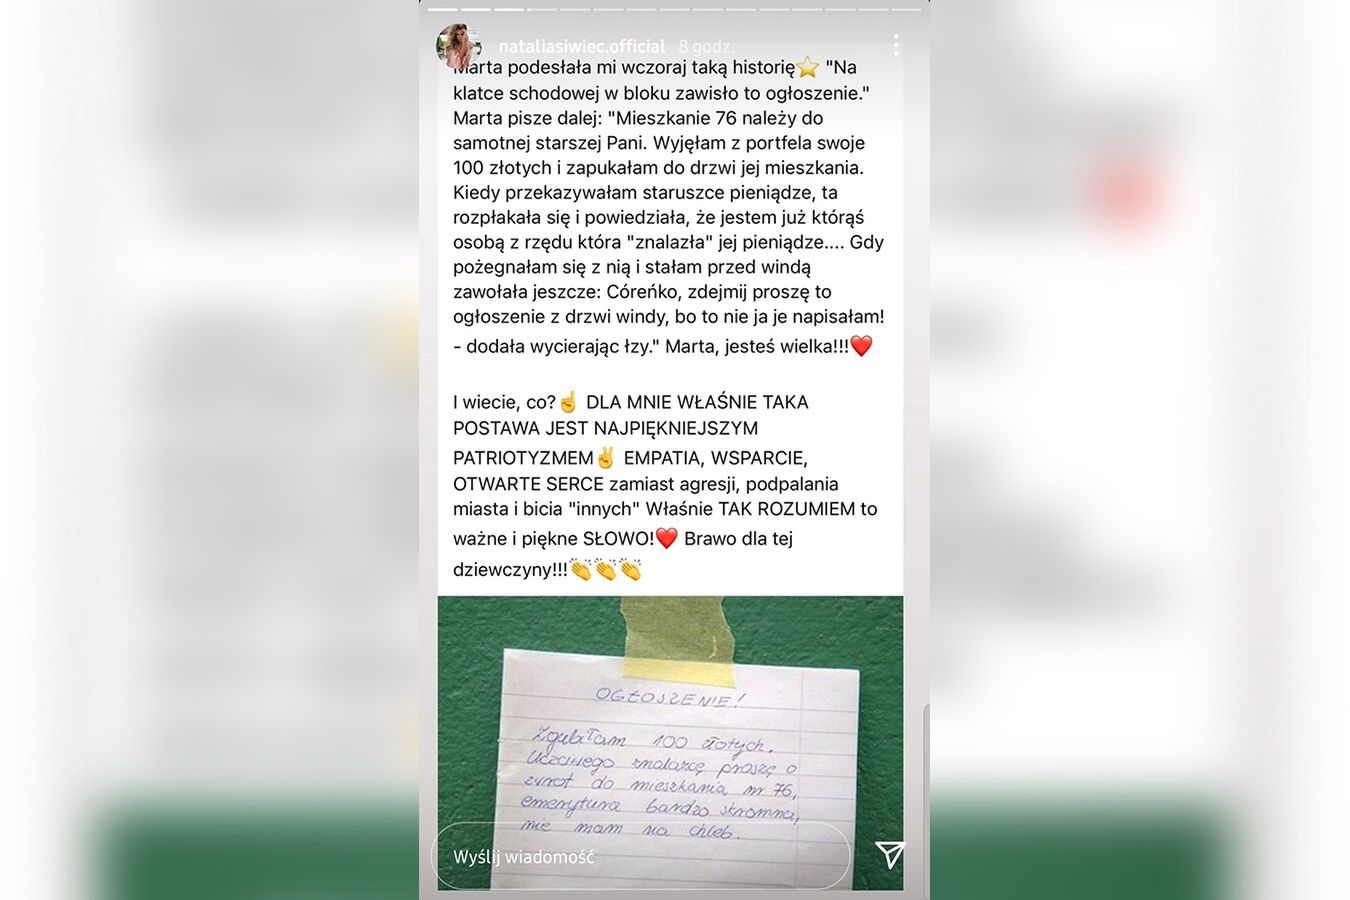 nataliasiwiec.official 8 godz.
Marta podesłała mi wczoraj taką historię⭐ "Na
klatce schodowej w bloku zawisło to ogłoszenie."
Marta pisze dalej: "Mieszkanie 76 należy do
samotnej starszej Pani. Wyjęłam z portfela swoje
100 złotych i zapukałam do drzwi jej mieszkania.
Kiedy przekazywałam staruszce pieniądze, ta
rozpłakała się i powiedziała, że jestem już którąś
osobą z rzędu która "znalazła" jej pieniądze.... Gdy
pożegnałam się z nią i stałam przed windą
zawołała jeszcze: Córeńko, zdejmij proszę to
ogłoszenie z drzwi windy, bo to nie ja je napisałam!
- dodała wycierając łzy." Marta, jesteś wielka!!!❤️
I wiecie, co?☝️ DLA MNIE WŁAŚNIE TAKA
POSTAWA JEST NAJPIĘKNIEJSZYM
PATRIOTYZMEM✌️ EMPATIA, WSPARCIE,
OTWARTE SERCE zamiast agresji, podpalania
miasta i bicia "innych" Właśnie TAK ROZUMIEM to
ważne i piękne SŁOWO!❤️ Brawo dla tej
dziewczyny!!!👏👏👏
OGŁOSZENIE!
Zgubiłam 100 złotych.
Uczciwego znalazcę proszę o
zwrot do mieszkania nr 76,
emerytura bardzo skromna,
nie mam na chleb.
Wyślij wiadomość